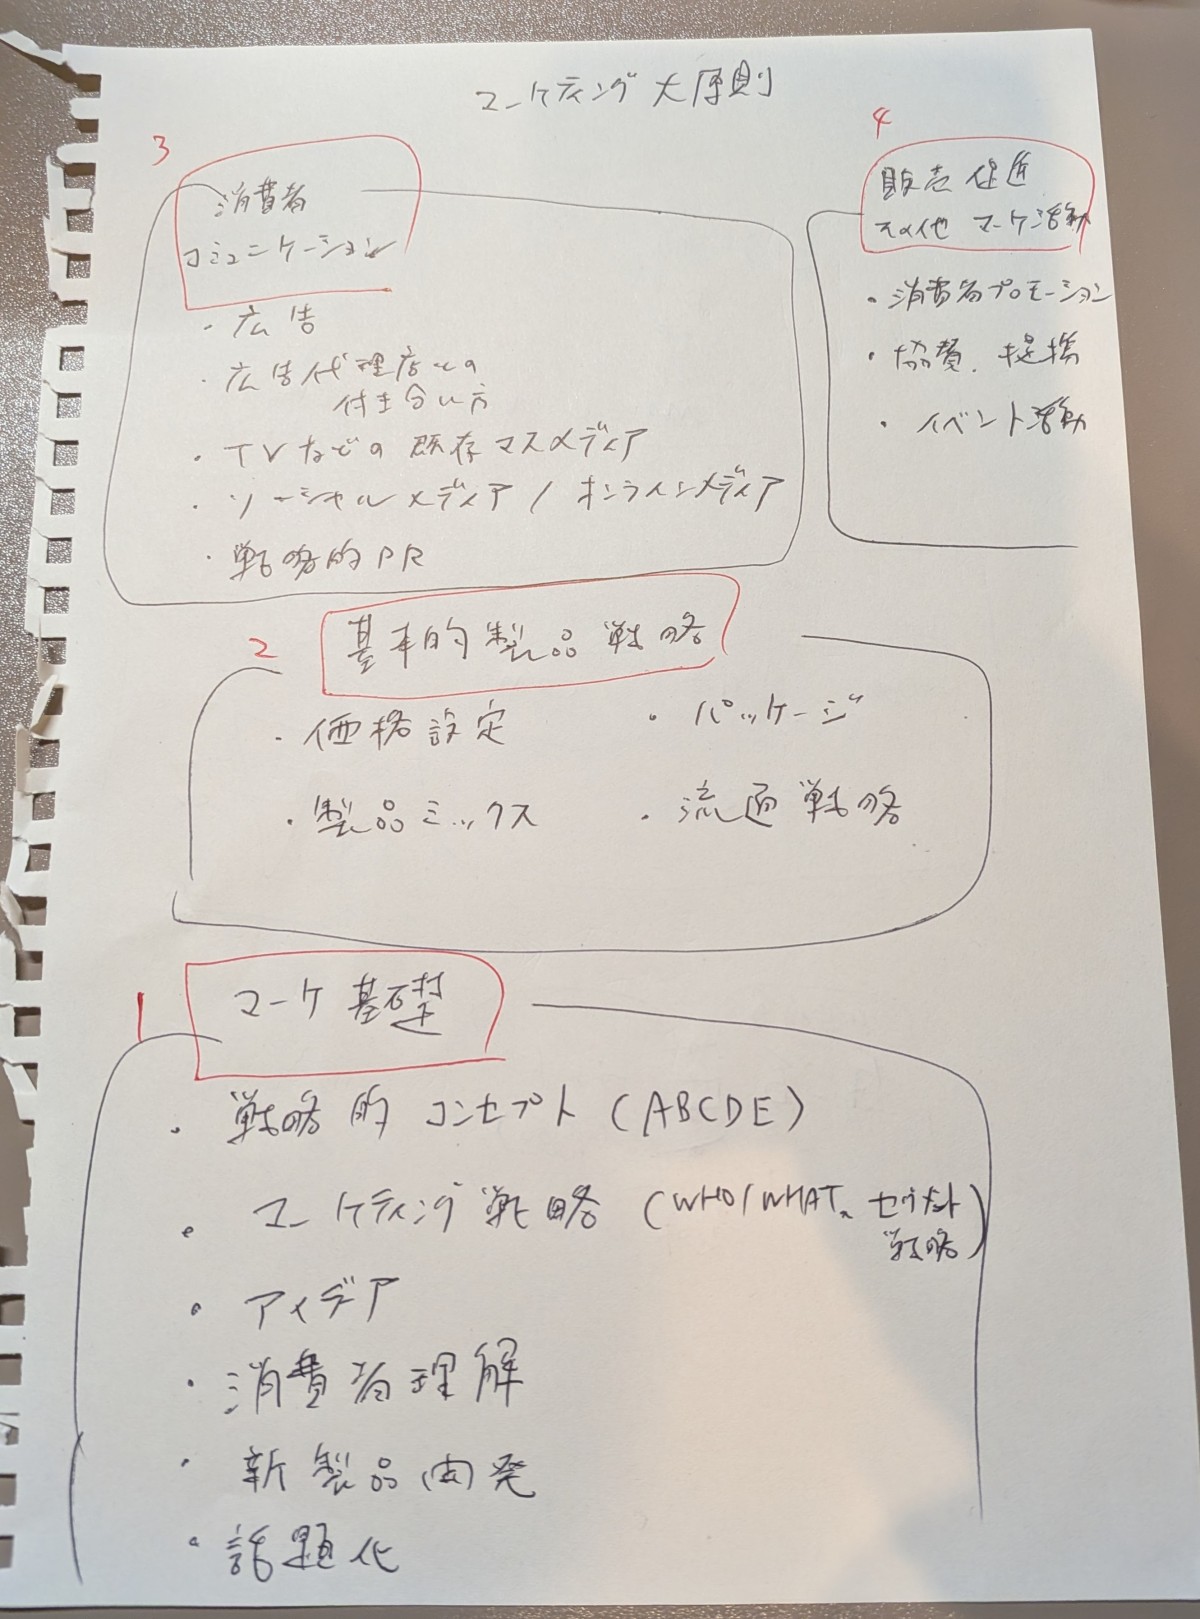 マーケティング大原則
3
消費者
コミュニケーション
・広告
・広告代理店との
付き合い方
・TVなどの既存マスメディア
・ソーシャルメディア/オンラインメディア
・戦略的PR
4
販売促進
その他マーケ活動
・消費者プロモーション
・協賛、提携
・イベント活動
2
基本的製品戦略
・価格設定
・パッケージ
・製品ミックス
・流通戦略
1
マーケ基礎
・戦略的コンセプト(ABCDE)
・マーケティング戦略(WHO/WHAT、セグメント
戦略)
・アイデア
・消費者理解
・新製品開発
・話題化